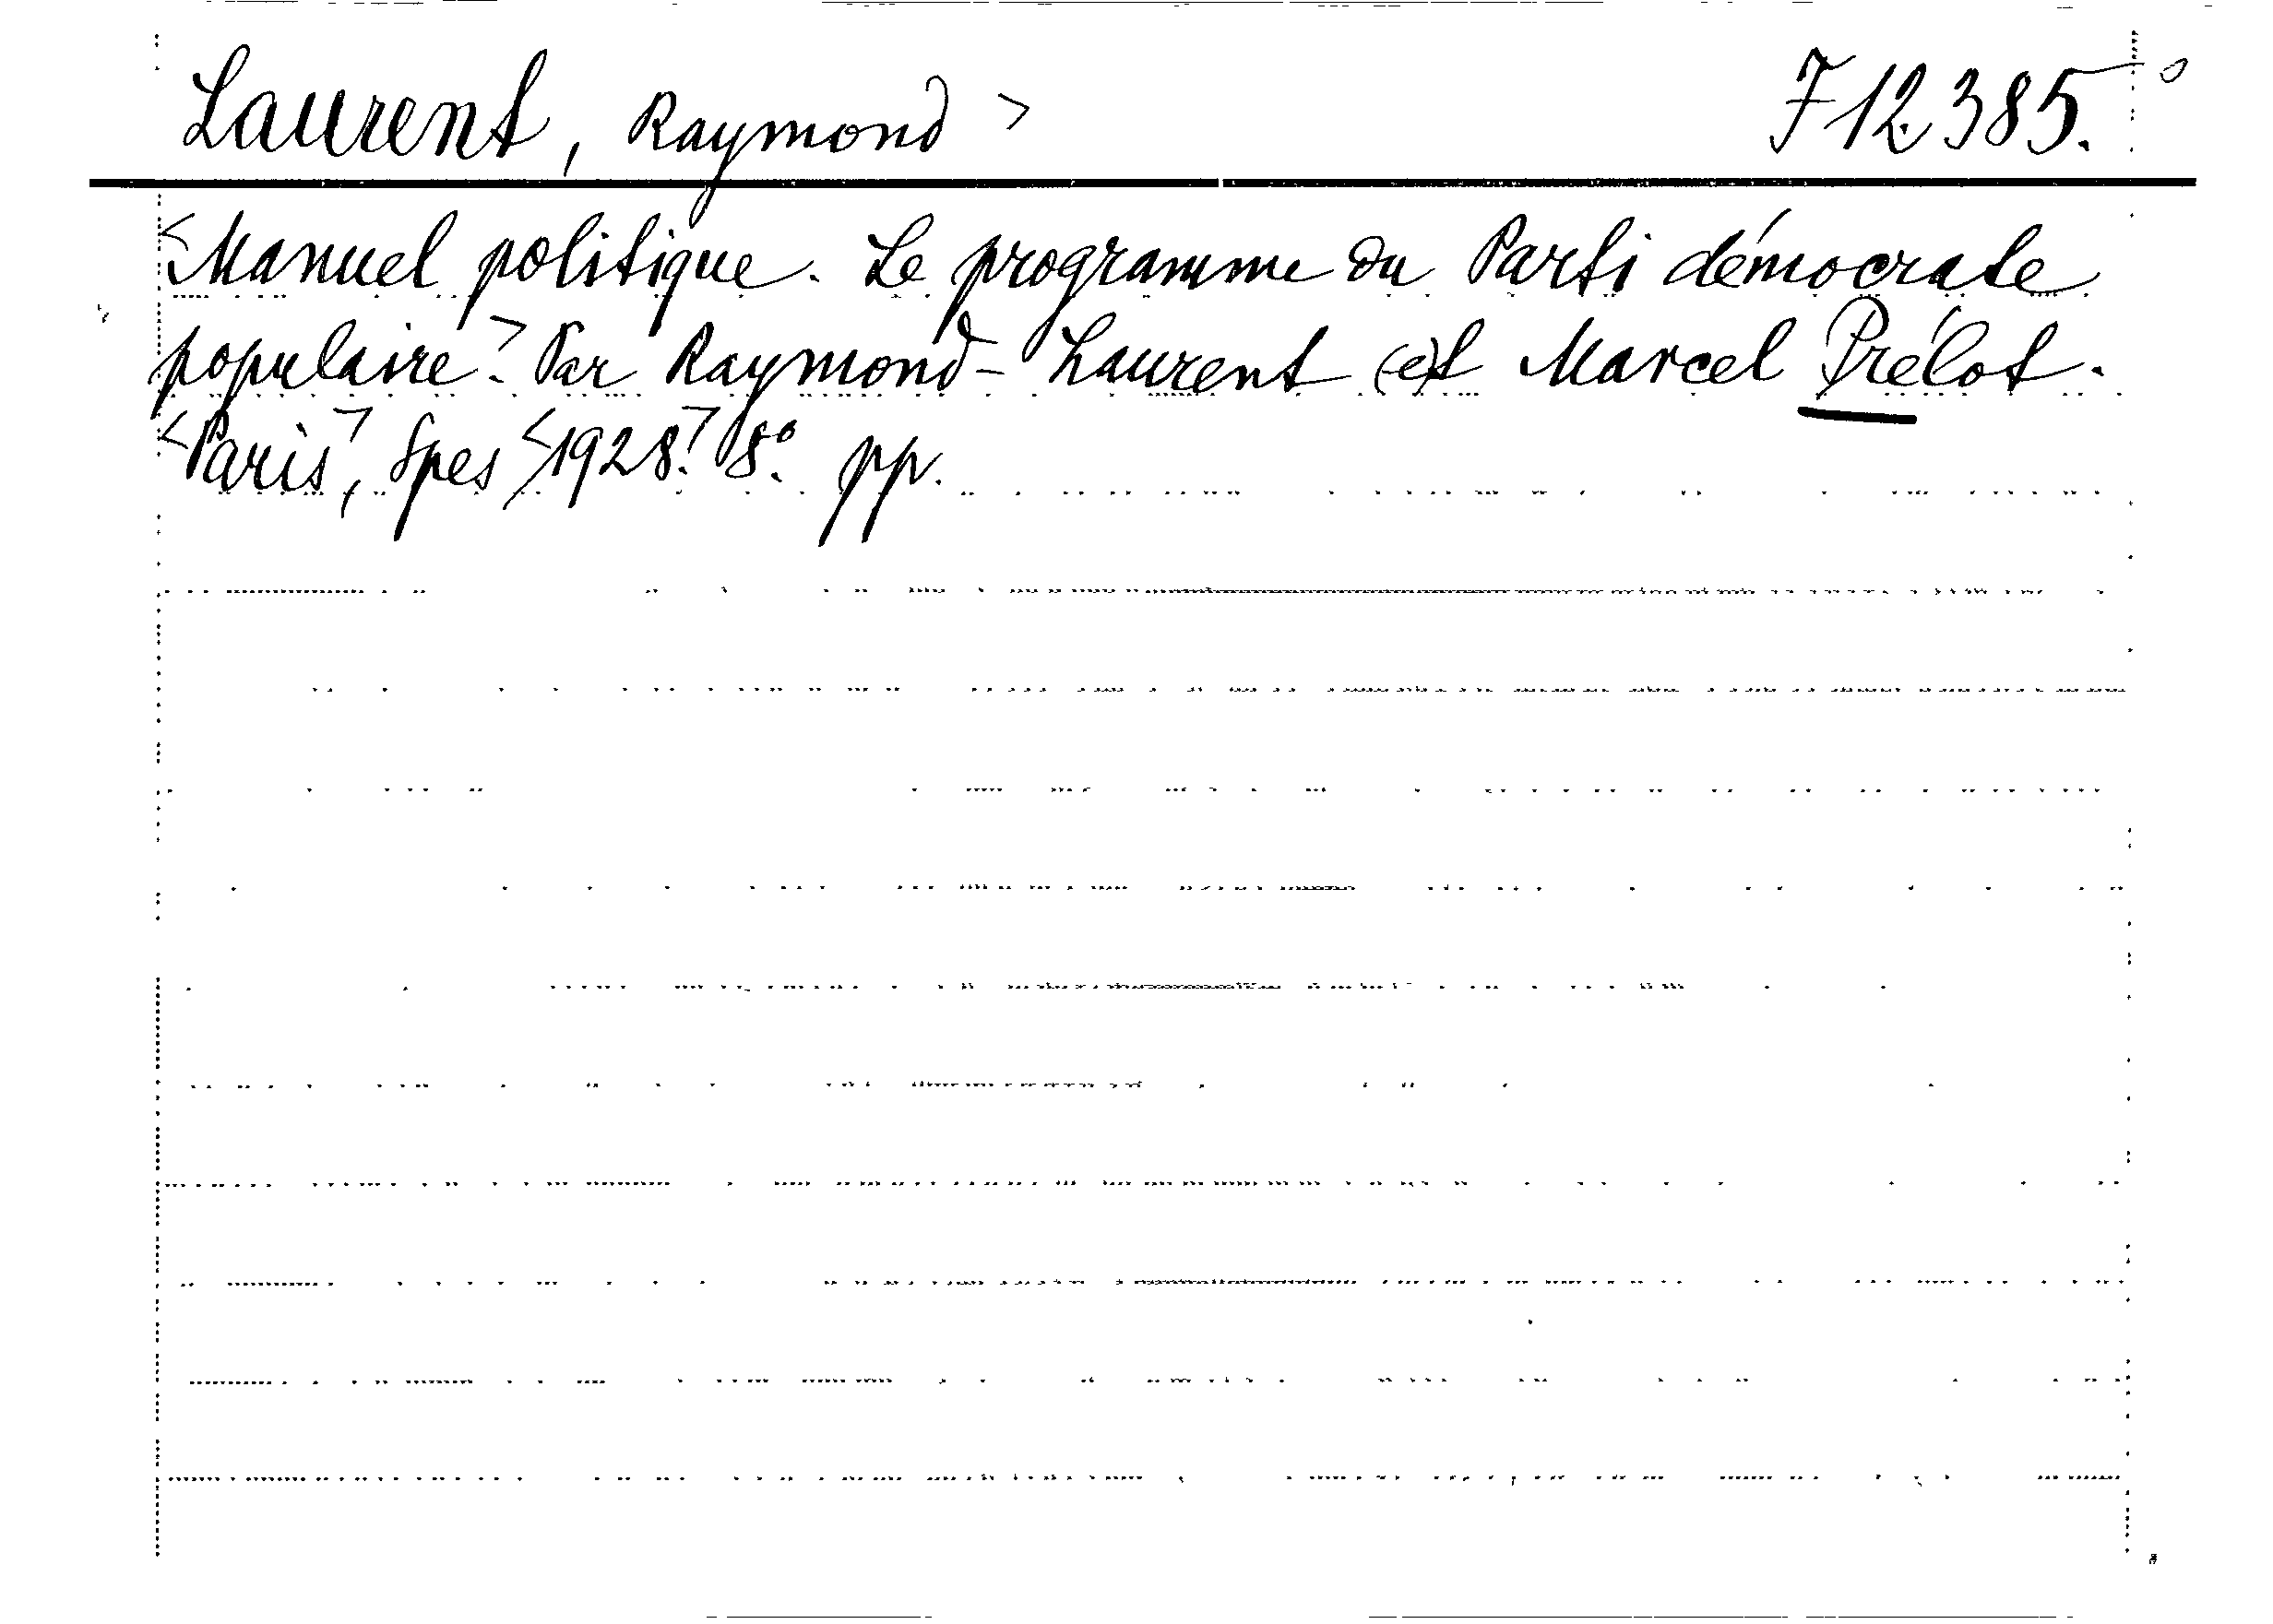 Laurent, Raymond > F 12.385.
<Manuel politique. Le programme du Parti démocrate
populaire.> Par Raymond-Laurent (et) Marcel Prélot.
<Paris>, Spes <1928.> 8°. pp.